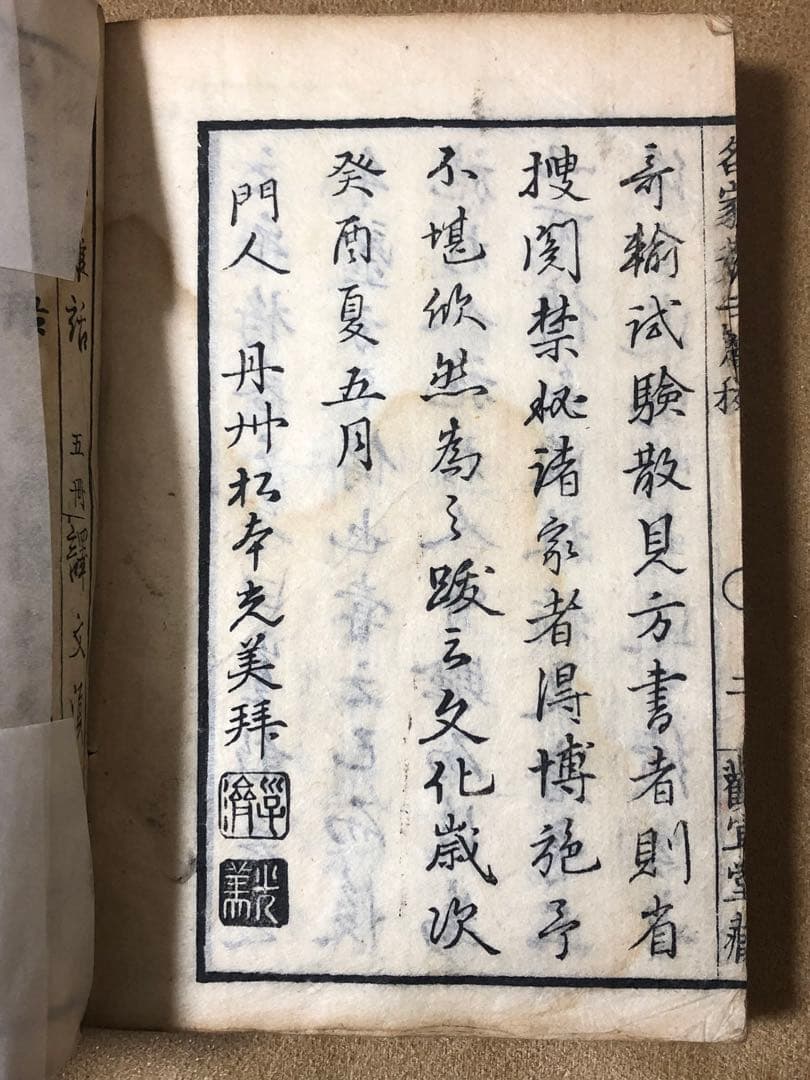 奇輸試驗散見方書者則省
搜閱禁秘諸家者得博施予
不堪欣然為之跋云文化歲次
癸酉夏五月
門人 丹州松本光美拜
光美
名家
二
觀宜堂
話
五冊
譯文